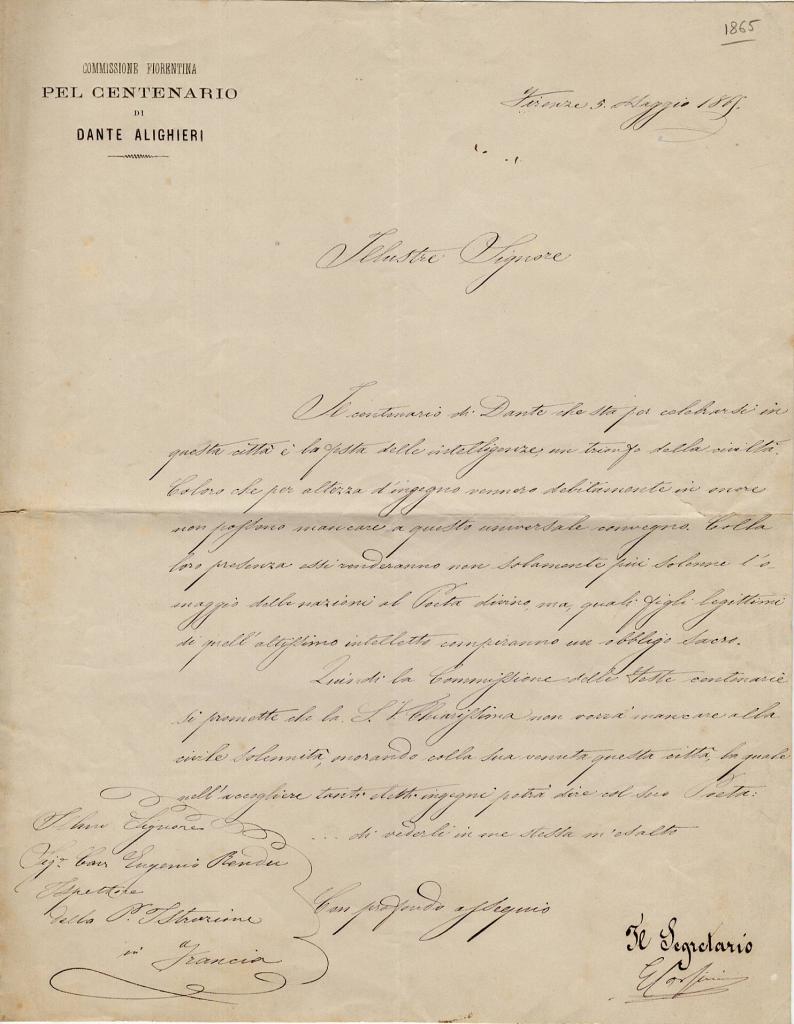 1865
COMMISSIONE FIORENTINA
PEL CENTENARIO
DI
DANTE ALIGHIERI
Firenze 5. Maggio 1865.
Illustre Signore
Il centenario di Dante che sta per celebrarsi in
questa città è la festa delle intelligenze, un trionfo della civiltà.
Coloro che per altezza d'ingegno vennero debitamente in onore
non possono mancare a questo universale convegno. Colla
loro presenza essi renderanno non solamente più solenne l'o-
maggio delle nazioni al Poeta divino, ma, quali figli legittimi
di quell'altissimo intelletto compiranno un obbligo sacro.
Quindi la Commissione delle Feste centenarie
si promette che la S. V. Chiarissima non vorrà mancare alla
civile solennità, onorando colla sua venuta questa città, la quale
nell'accogliere tanti eletti ingegni potrà dire col suo Poeta:
... di vederli in me stessa m'esalto
Con profondo ossequio
Il Segretario
Illmo Signore
Sigr. Cav Eugenio Rendu
Ispettore
della P. Istruzione
in Francia